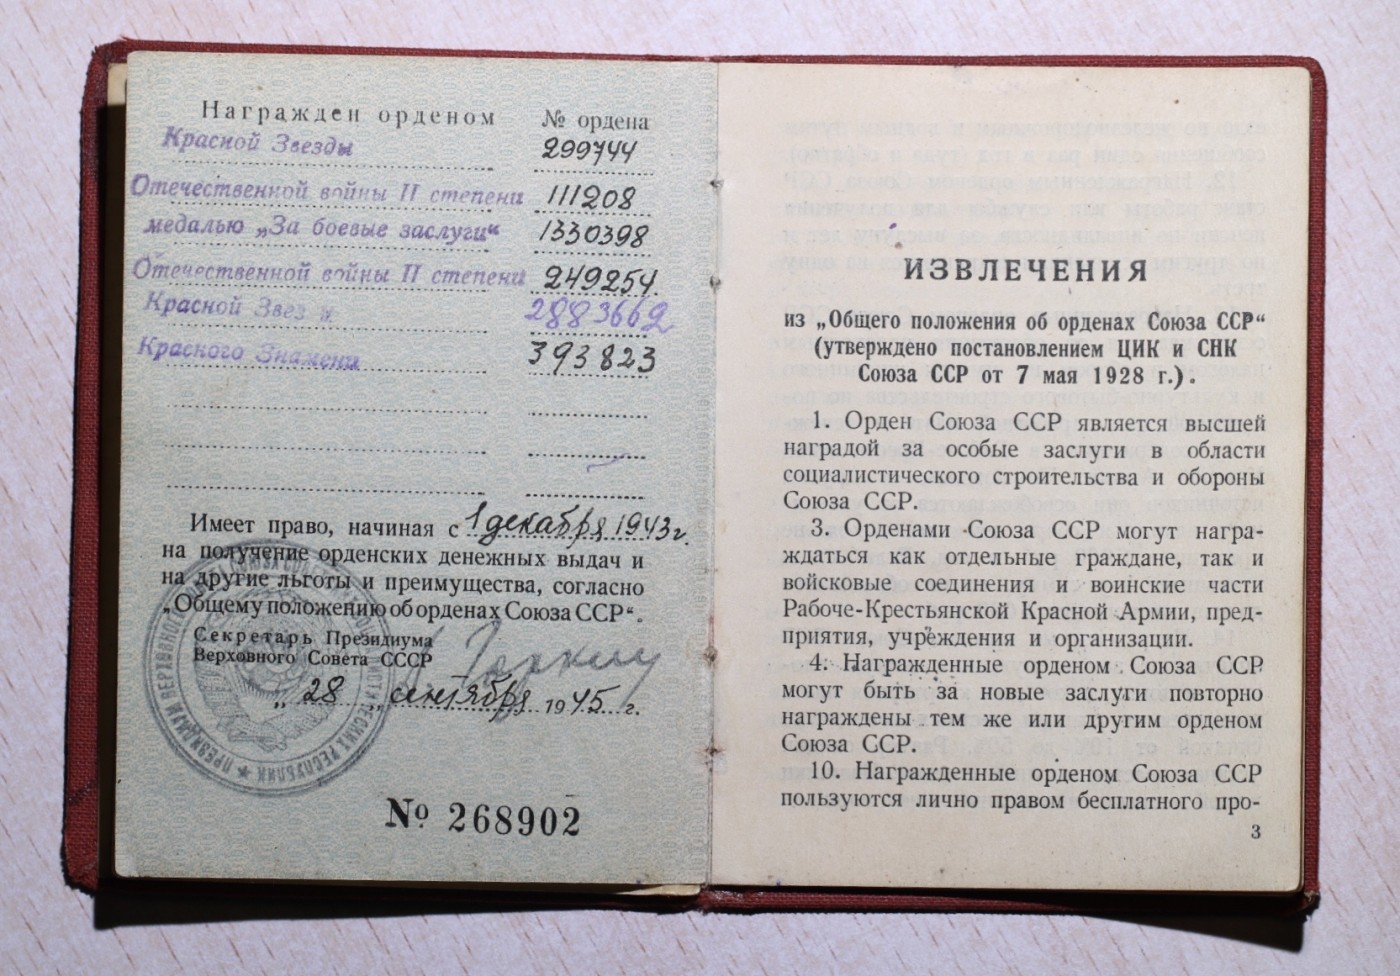 Награжден орденом № ордена
Красной Звезды 299744
Отечественной войны II степени 111208
медалью „За боевые заслуги“ 1330398
Отечественной войны II степени 249254
Красной Звез и 2883662
Красного Знамени 393823
Имеет право, начиная с 1 декабря 1943 г.
на получение орденских денежных выдач и
на другие льготы и преимущества, согласно
„Общему положению об орденах Союза ССР“.
Секретарь Президиума
Верховного Совета СССР
„ 28 „ сентября 1945 г.
№ 268902
ИЗВЛЕЧЕНИЯ
из „Общего положения об орденах Союза ССР“
(утверждено постановлением ЦИК и СНК
Союза ССР от 7 мая 1928 г.).
1. Орден Союза ССР является высшей
наградой за особые заслуги в области
социалистического строительства и обороны
Союза ССР.
3. Орденами Союза ССР могут награ-
ждаться как отдельные граждане, так и
войсковые соединения и воинские части
Рабоче-Крестьянской Красной Армии, пред-
приятия, учреждения и организации.
4. Награжденные орденом Союза ССР
могут быть за новые заслуги повторно
награждены тем же или другим орденом
Союза ССР.
10. Награжденные орденом Союза ССР
пользуются лично правом бесплатного про-
3